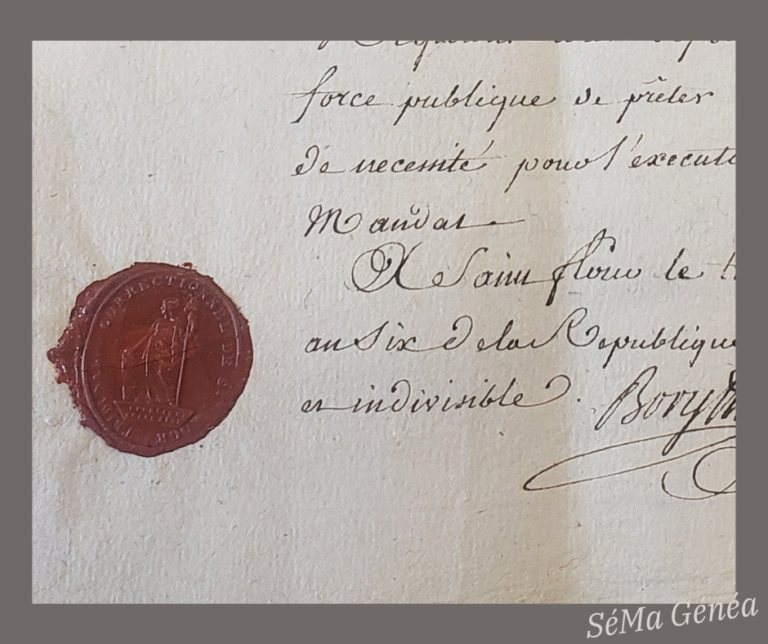 force publique de prêter
de necessité pour l'executi
Mandat
A Saint flour le
an Six de la Republique
et indivisible. Bory
TRIBUNAL CORRECTIONNEL DE S.
SéMa Généa